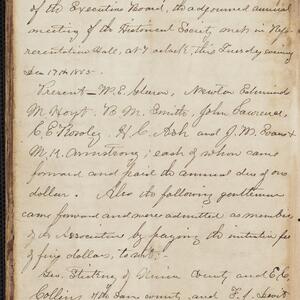 of the Executive Board, the adjourned annual
meeting of the Historical Society met in Rep-
resentation Hall, at 7 o'clock this Tuesday evening
Dec 17th 1885.
Present — W. E. Newton Edmunds
M. Hoyt. B. M. Smith, John Lawrence,
C. E. H. C. Ash and J. W. Evans &
M. K. Armstrong; each of whom came
forward and paid the annual due of one
dollar. Also the following gentlemen
came forward and were admitted as members
of the Association by paying the initiation fee
of five dollars, to wit:
Geo. of Union County and E. C.
Collins of the same county and F. J. Dewitt